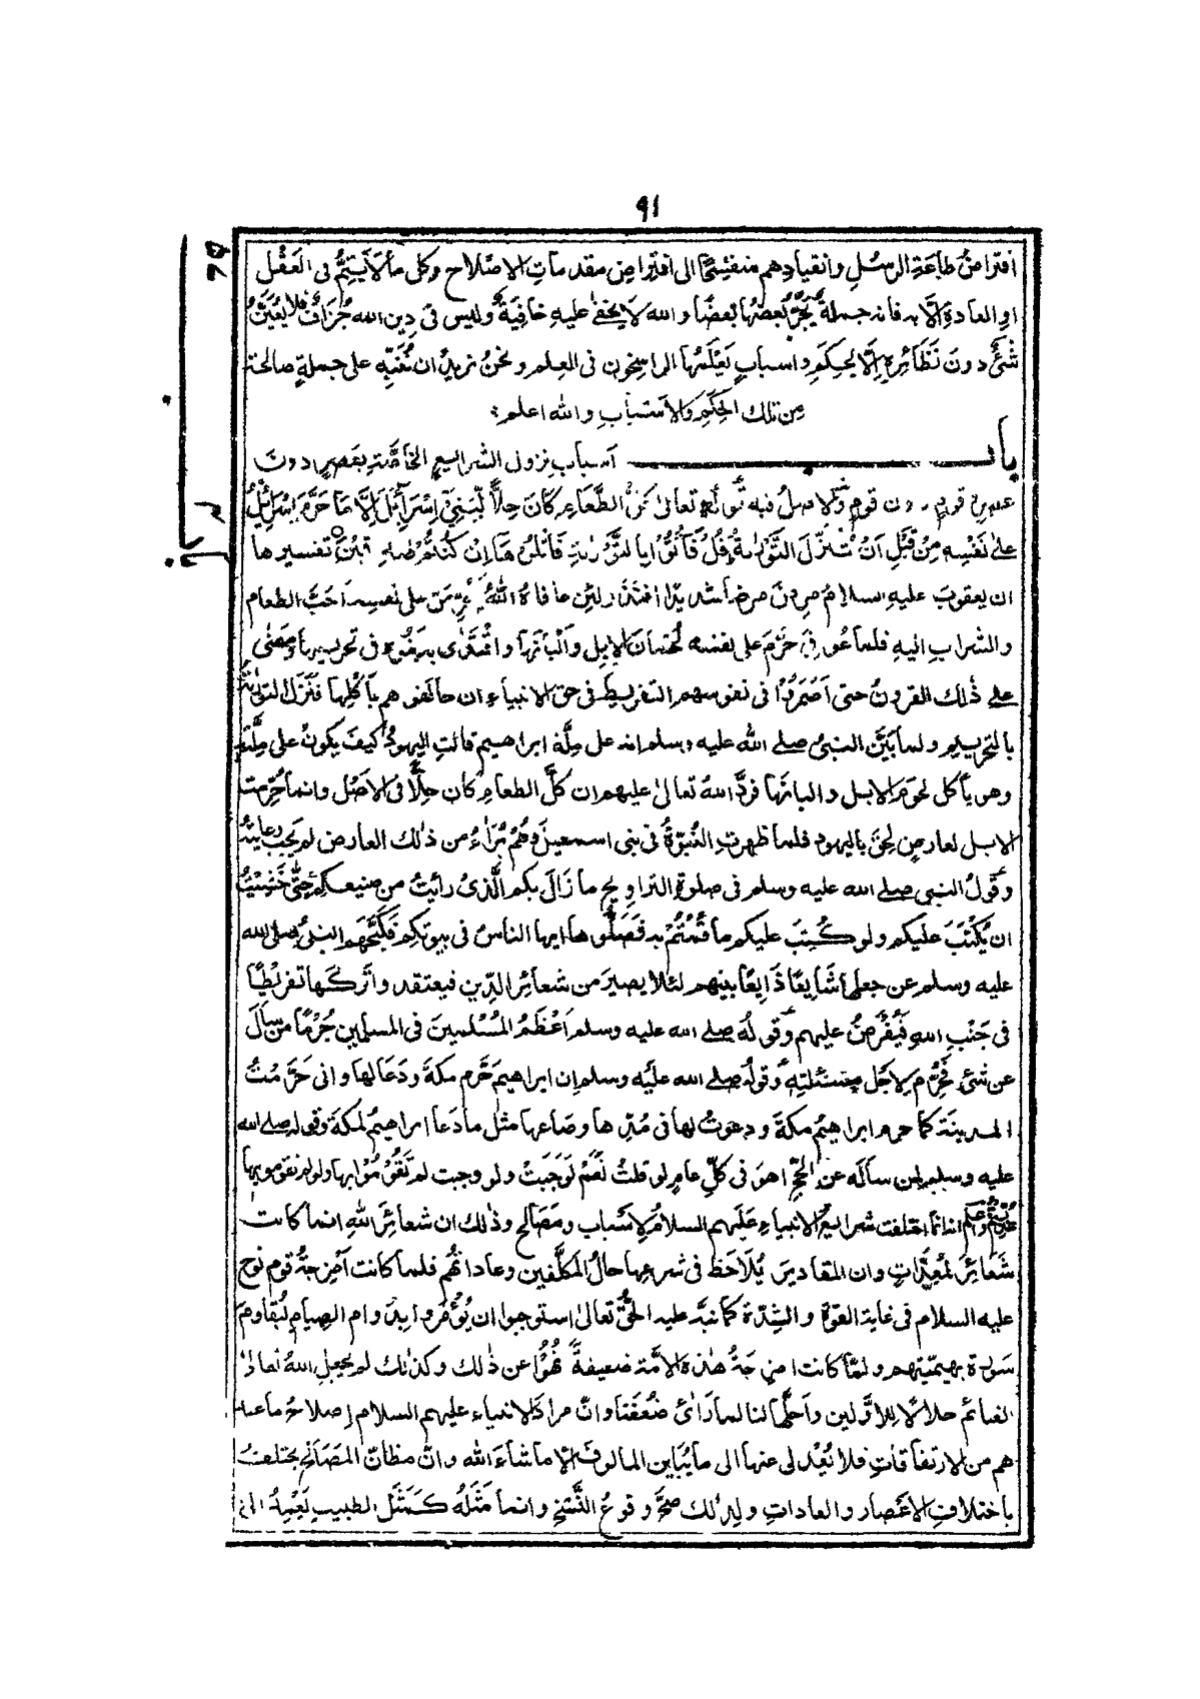 ٩١
افتراض طاعة الرسل وانقيادهم منفتحا الى افتراض مقدمات الاصلاح وكل ما لا يتم فى العقل
او العادة الا به فانه جملة يجر بعضها بعضا والله لا يخفى عليه خافية وليس فى دين الله جزاف فلا يعين
شئ دون نظائره الا بحكم واسباب يعلمها الراسخون فى العلم ونحن نريد ان ننبه على جملة صالحة
من تلك الحكم والاسباب والله اعلم
باب اسباب نزول الشرائع الخاصة بعصر دون
عصر وقوم دون قوم والاصل فيه قوله تعالى كل الطعام كان حلا لبنى اسرآئيل الا ما حرم اسرائيل
على نفسه من قبل ان تنزل التورىة قل فأتوا بالتورىة فاتلوها ان كنتم صدقين تفسيرها
ان يعقوب عليه السلام مرض مرضا شديدا فنذر لئن عافاه الله ليحرمن على نفسه احب الطعام
والشراب اليه فلما عوفى حرم على نفسه لحمان الابل والبانها واقتدى به بنوه فى تحريمها ومضى
على ذلك القرون حتى اضمروا فى نفوسهم التفريط فى حق الانبياء ان خالفوهم باكلها فنزل التورىة
بالتحريم ولما بين النبى صلى الله عليه وسلم انه على ملة ابراهيم قالت اليهود كيف يكون على ملته
وهو ياكل لحوم الابل والبانها فرد الله تعالى عليهم ان كل الطعام كان حلا فى الاصل وانما حرمت
الابل لعارض لحق باليهود فلما ظهرت النبوة فى بنى اسمعيل وهم براء من ذلك العارض لم يجب رعايته
وقول النبى صلى الله عليه وسلم فى صلوة التراويح ما زال بكم الذى رأيت من صنيعكم حتى خشيت
ان يكتب عليكم ولو كتب عليكم ما قمتم به فصلوها ايها الناس فى بيوتكم فكبحهم النبى صلى الله
عليه وسلم عن جعلها شايعا ذايعا بينهم لئلا يصير من شعائر الدين فيعتقدوا تركها تفريطا
فى جنب الله فيفرض عليهم وقوله صلى الله عليه وسلم اعظم المسلمين فى المسلمين جرما من سأل
عن شئ فحرم لاجل مسئلته وقوله صلى الله عليه وسلم ان ابراهيم حرم مكة ودعا لها وانى حرمت
المدينة كما حرم ابراهيم مكة ودعوت لها فى مدها وصاعها مثل ما دعا ابراهيم لمكة وقوله صلى الله
عليه وسلم لمن سأله عن الحج اهو فى كل عام لو قلت نعم لوجبت ولو وجبت لم تقوموا بها ولو لم تقوموا بها
عذبتم واعلم انه انما اختلفت شرايع الانبياء عليهم السلام لاسباب ومصالح وذلك ان شعائر الله انما كانت
شعائر لمعدات وان المقادير يلاحظ فى شرعها حال المكلفين وعاداتهم فلما كانت امزجة قوم نوح
عليه السلام فى غاية القوة والشدة كما نبه عليه الحق تعالى استوجبوا ان يؤمروا بدوام الصيام ليقاوم
سورة بهيميتهم ولما كانت امزجة هذه الامة ضعيفة نهوا عن ذلك وكذلك لم يجعل الله تعالى
الغنائم حلالا للاولين واحلها لنا لما رأى ضعفنا وان مراد الانبياء عليهم السلام اصلاح ما عند
هم من الارتفاقات فلا يعدل عنها الى ما يباين المالوف الا ما شاء الله وان مظان المصالح يختلف
باختلاف الاعصار والعادات ولذلك صح وقوع النسخ وانما مثله كمثل الطبيب يعمد الى